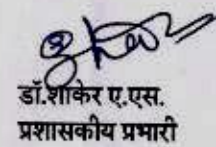 डॉ.शाकेर ए.एस.
प्रशासकीय प्रभारी